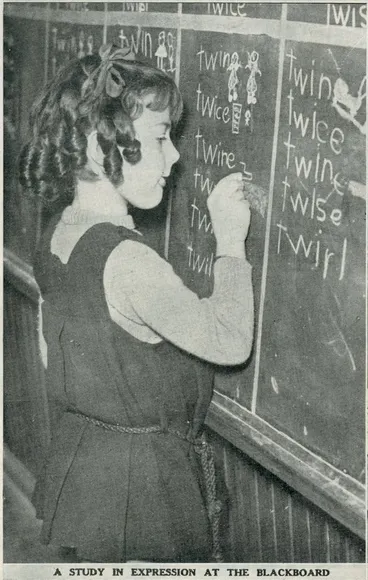 twice
twis
twin
twin
twice
twine
twin
twice
twine
twise
twirl
A STUDY IN EXPRESSION AT THE BLACKBOARD